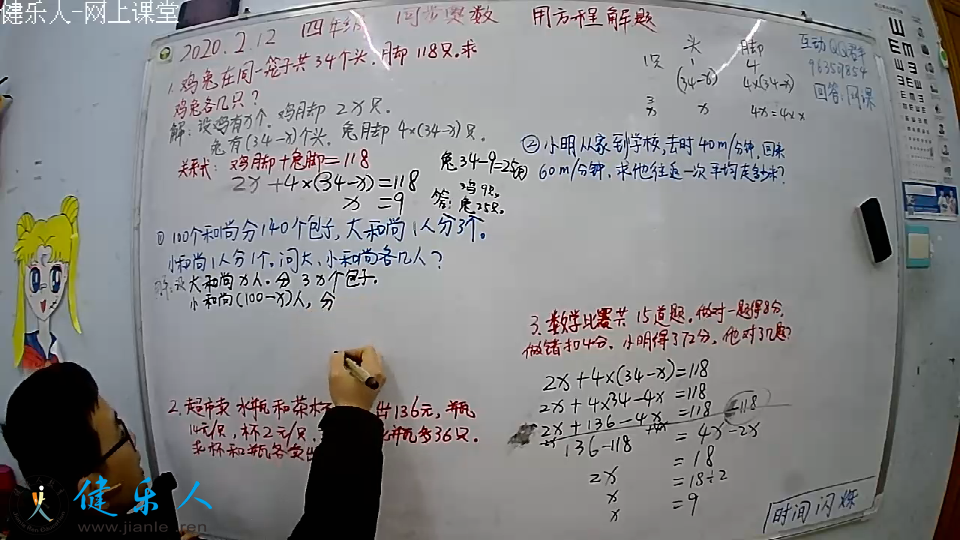 健乐人-网上课堂
2020.2.12 四年级 同步奥数 用方程解题
1. 鸡兔在同一笼子共34个头，脚118只。求
鸡兔各几只？
解：设鸡有x个，鸡脚 2x只。
兔有(34-x)个头，兔脚 4×(34-x)只。
关系式：鸡脚+兔脚=118
2x+4×(34-x)=118
x=9
兔34-9=25(只)
答：鸡9只。
兔25只。
头 脚
1只 1 4
(34-x) 4×(34-x)
x 4x=4×x
互动QQ群
回答，网课
② 小明从家到学校，去时40m/分钟，回来
60m/分钟，求他往返一次平均走多少米？
① 100个和尚分140个包子，大和尚1人分3个。
小和尚1人分1个。问大、小和尚各几人？
解：设大和尚x人。分 3x个包子。
小和尚(100-x)人，分
2. 超市卖水瓶和茶杯 出136元，瓶
14元/只，杯2元/只， 比瓶多36只。
求杯和瓶各卖出
3. 数学比赛共15道题，做对一题得8分，
做错扣4分，小明得了72分，他对几题？
2x+4×(34-x)=118
2x+4×34-4x=118
2x+136-4x=118 =118
136-118 =4x-2x
2x =18
x =18÷2
x =9
时间闪烁
健乐人
www.jianle ren